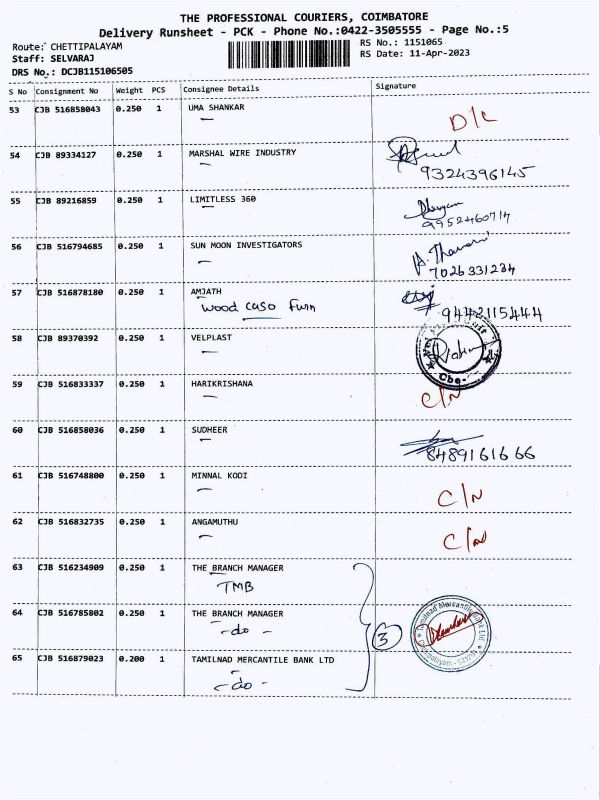 THE PROFESSIONAL COURIERS, COIMBATORE
Delivery Runsheet - PCK - Phone No.:0422-3505555 - Page No.:5
Route: CHETTIPALAYAM RS No.: 1151065
Staff: SELVARAJ RS Date: 11-Apr-2023
DRS No.: DCJB115106505
S No Consignment No Weight PCS Consignee Details Signature
53 CJB 516858043 0.250 1 UMA SHANKAR D/L
54 CJB 89334127 0.250 1 MARSHAL WIRE INDUSTRY
9324396145
55 CJB 89216859 0.250 1 LIMITLESS 360
9952460714
56 CJB 516794685 0.250 1 SUN MOON INVESTIGATORS
7026331234
57 CJB 516878180 0.250 1 AMJATH
wood caso Furn 9442115444
58 CJB 89370392 0.250 1 VELPLAST
Cbe-
59 CJB 516833337 0.250 1 HARIKRISHANA C/N
60 CJB 516858036 0.250 1 SUDHEER
8489161666
61 CJB 516748800 0.250 1 MINNAL KODI C/N
62 CJB 516832735 0.250 1 ANGAMUTHU C/N
63 CJB 516234909 0.250 1 THE BRANCH MANAGER
TMB
64 CJB 516785802 0.250 1 THE BRANCH MANAGER
-do- 3 Tamilnad Mercantile Bank Ltd.
65 CJB 516879023 0.200 1 TAMILNAD MERCANTILE BANK LTD
-do-